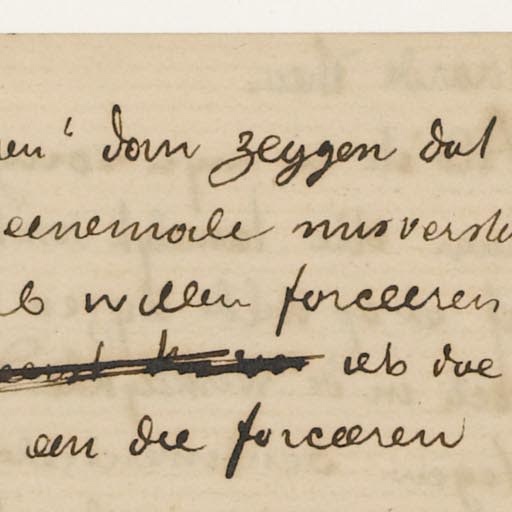 en" dom zeggen dat
eenemale misverst
eb willen forceeren
ieb die
een die forceeren